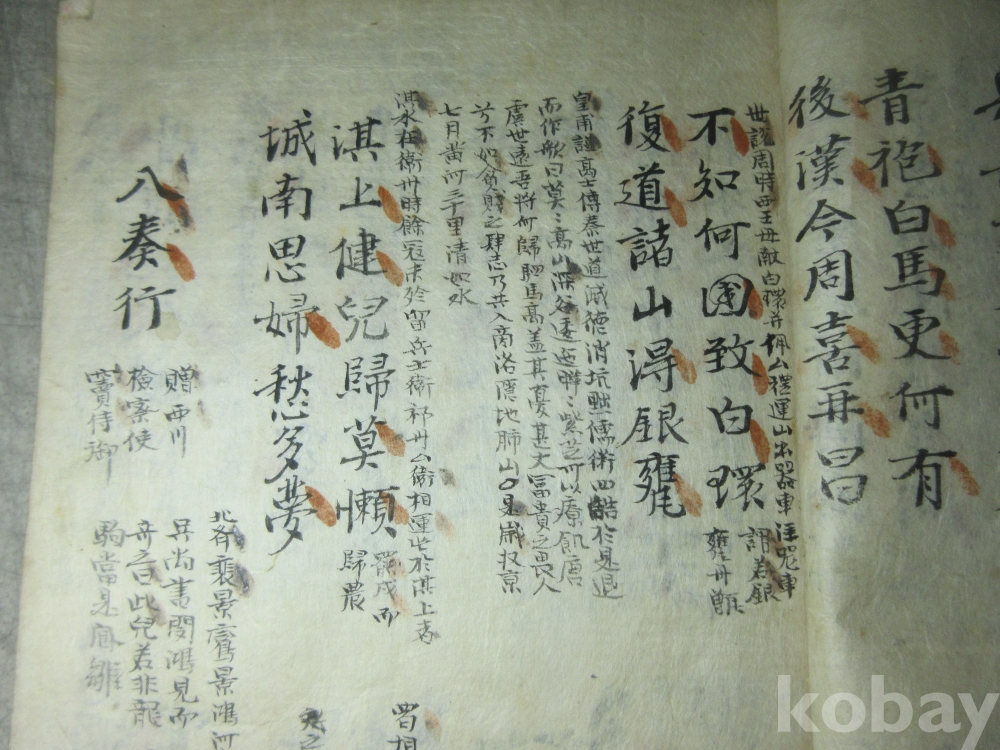 青袍白馬更何有
後漢今周喜再昌
世說周時西王母獻白環并佩公禮運山出器車注器車
謂若銀
甕丹甑
不知何國致白環
復道諸山得銀甕
皇甫謐高士傳秦世道滅德消坑黜儒術四皓於是退
而作歌曰莫莫高山深谷逶迤曄曄紫芝可以療飢唐
虞世遠吾將何歸駟馬高盖其憂甚大富貴之畏人
兮不如貧賤之肆志乃共入商洛隱地肺山
七月黃河三千里清如水
淇水在衛州時餘寇未殄留兵士衛
相運
於淇上者
罷戍而
歸農
淇上健兒歸莫懶
城南思婦愁多夢
八奏行
贈西川
檢察使
竇侍御
北齊裴景鸞景鴻河
吳尚書閔鴻見而
奇之曰此兒若非龍
駒當是鳳雛
kobay